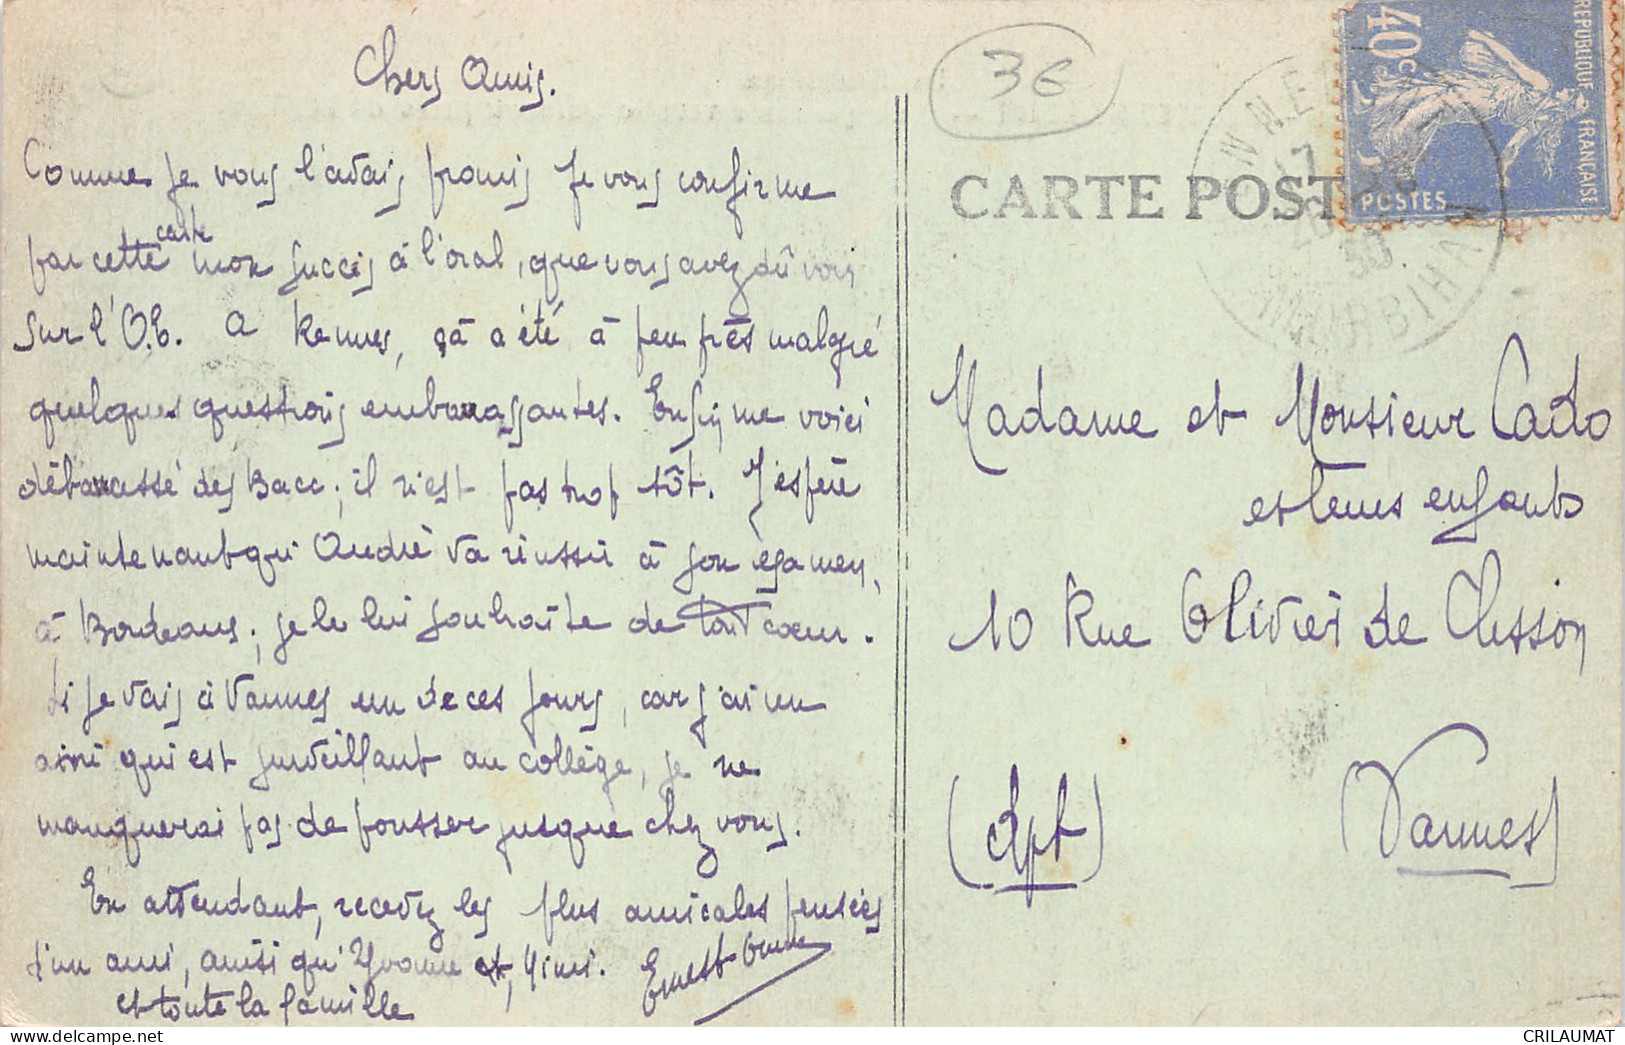 Chers Amis.
Comme je vous l'avais promis je vous confirme
par cette carte mon succès à l'oral, que vous avez dû voir
sur l'O.E. A Rennes, çà a été à peu près malgré
quelques questions embarrassantes. Enfin, me voici
débarrassé des Bacc; il n'est pas trop tôt. J'espère
maintenant qui André va réussir à son examen,
à Bordeaux; je le lui souhaite de tout coeur.
Si je vais à Vannes un de ces jours, car j'ai un
ami qui est surveillant au collège, je ne
manquerai pas de pousser jusque chez vous.
En attendant, recevez les plus amicales pensées
d'un ami, ainsi qu'Yvonne et, Mimi. Ernest
et toute la famille
3E
CARTE POST
REPUBLIQUE FRANÇAISE
40c
POSTES
NNE
17
30
MORBIHAN
Madame et Monsieur Cado
et leurs enfants
10 Rue Olivier de Clisson
(dpt) Vannes
CRILAUMAT